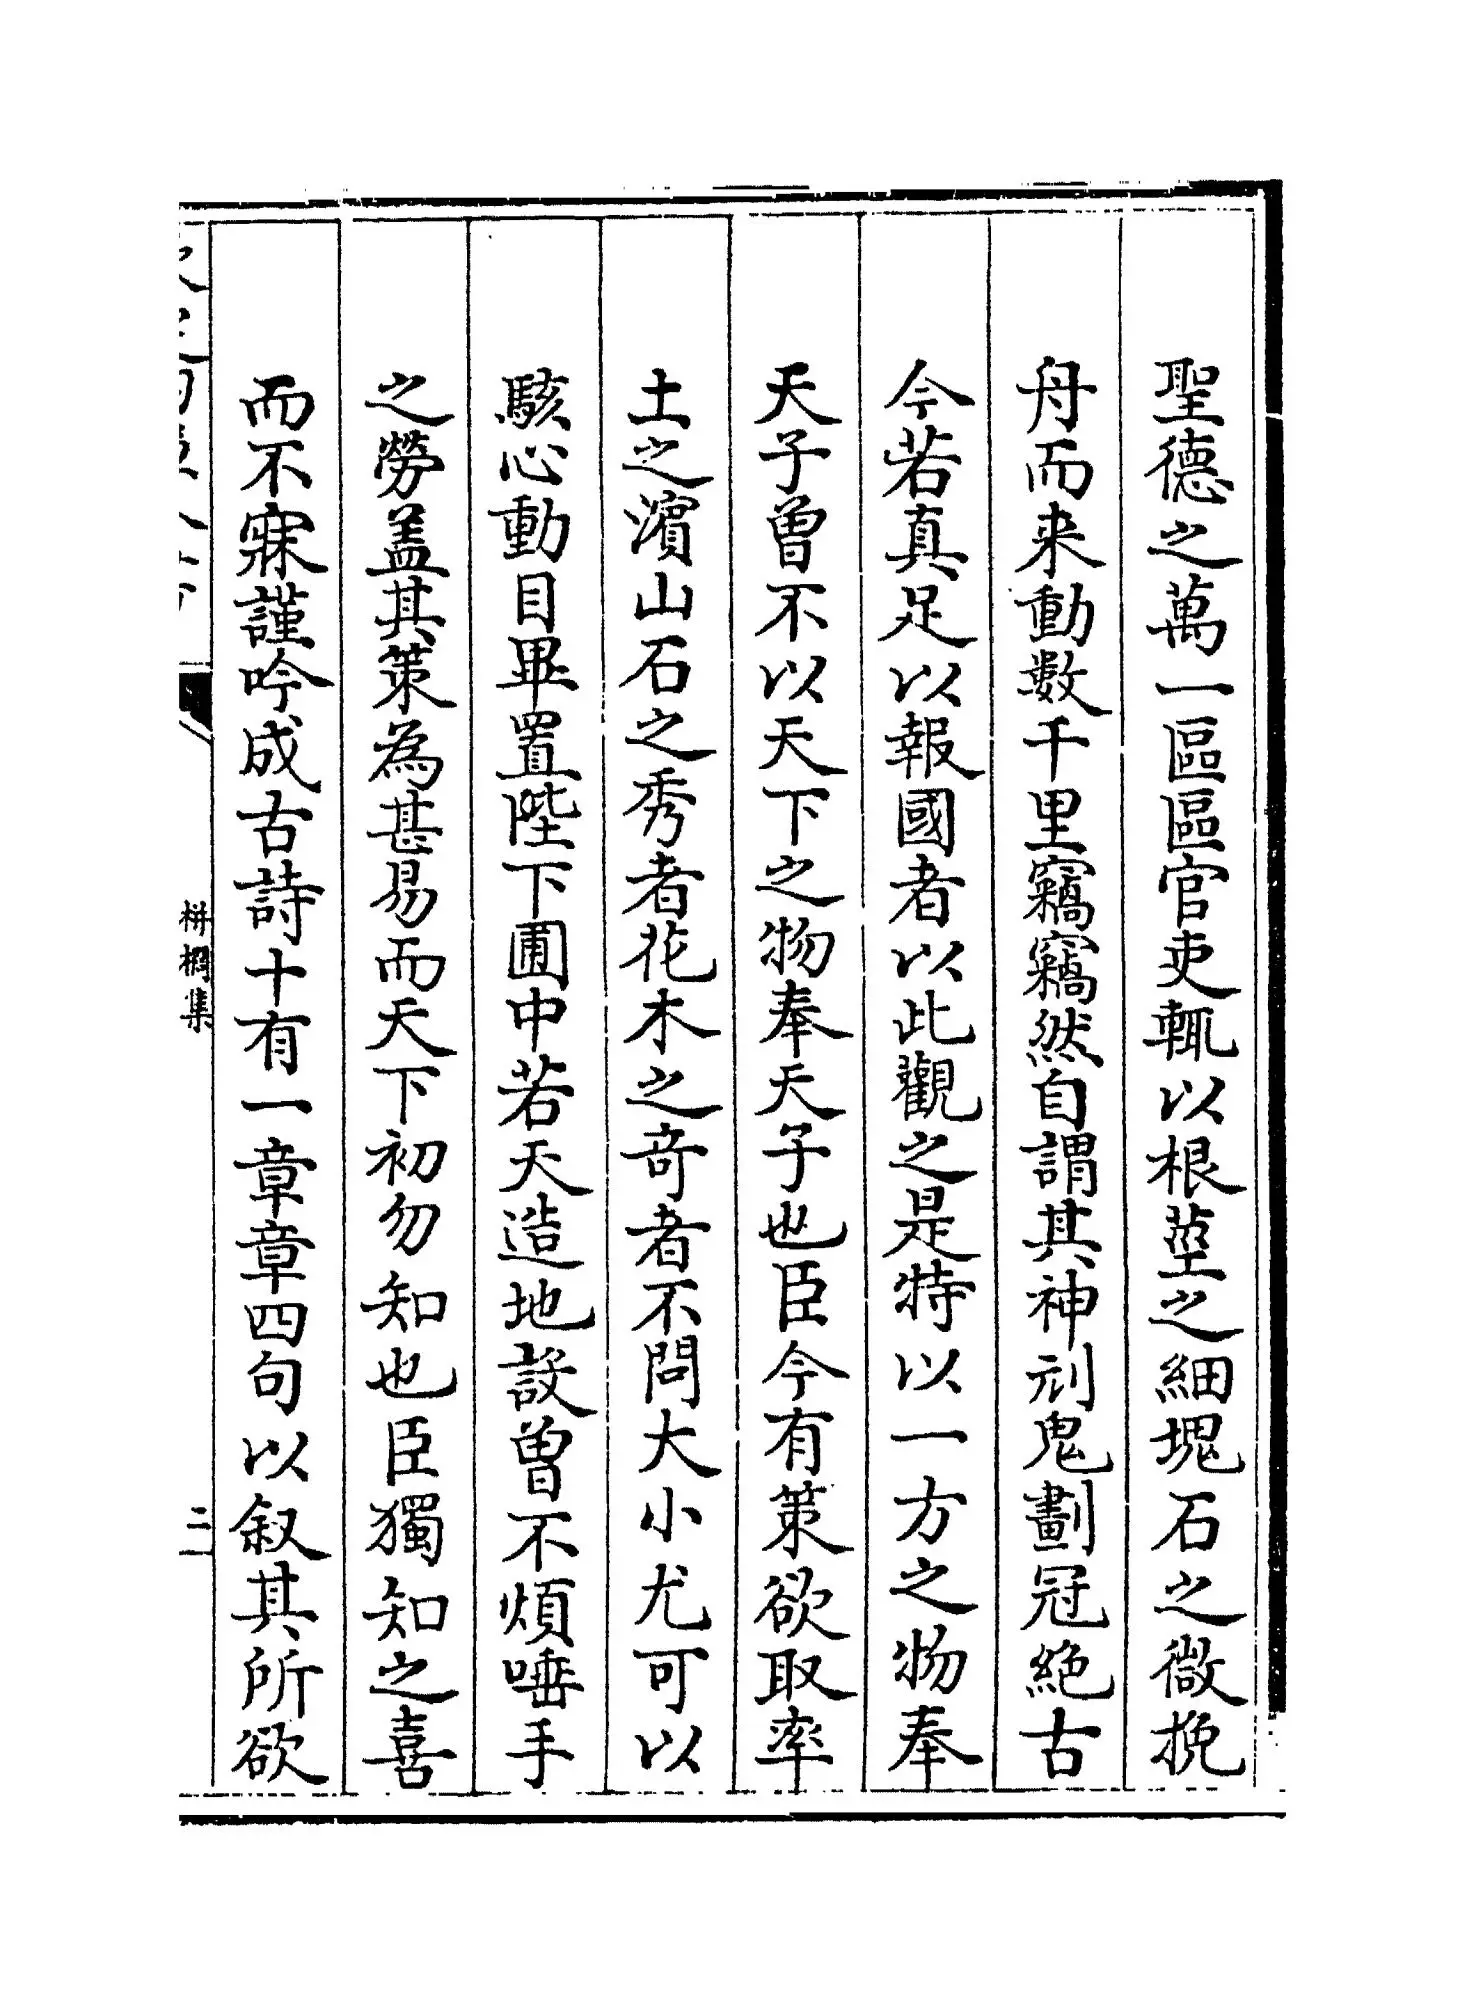 聖德之萬一區區官吏輒以根莖之細塊石之微挽
舟而来動數千里竊竊然自謂其神刓鬼劃冠絶古
今若真足以報國者以此觀之是特以一方之物奉
天子曽不以天下之物奉天子也臣今有策欲取率
土之濵山石之秀者花木之竒者不問大小尤可以
駭心動目畢置陛下圃中若天造地設曽不煩唾手
之勞盖其策為甚易而天下初勿知也臣獨知之喜
而不寐謹吟成古詩十有一章章四句以叙其所欲
栟櫚集
二